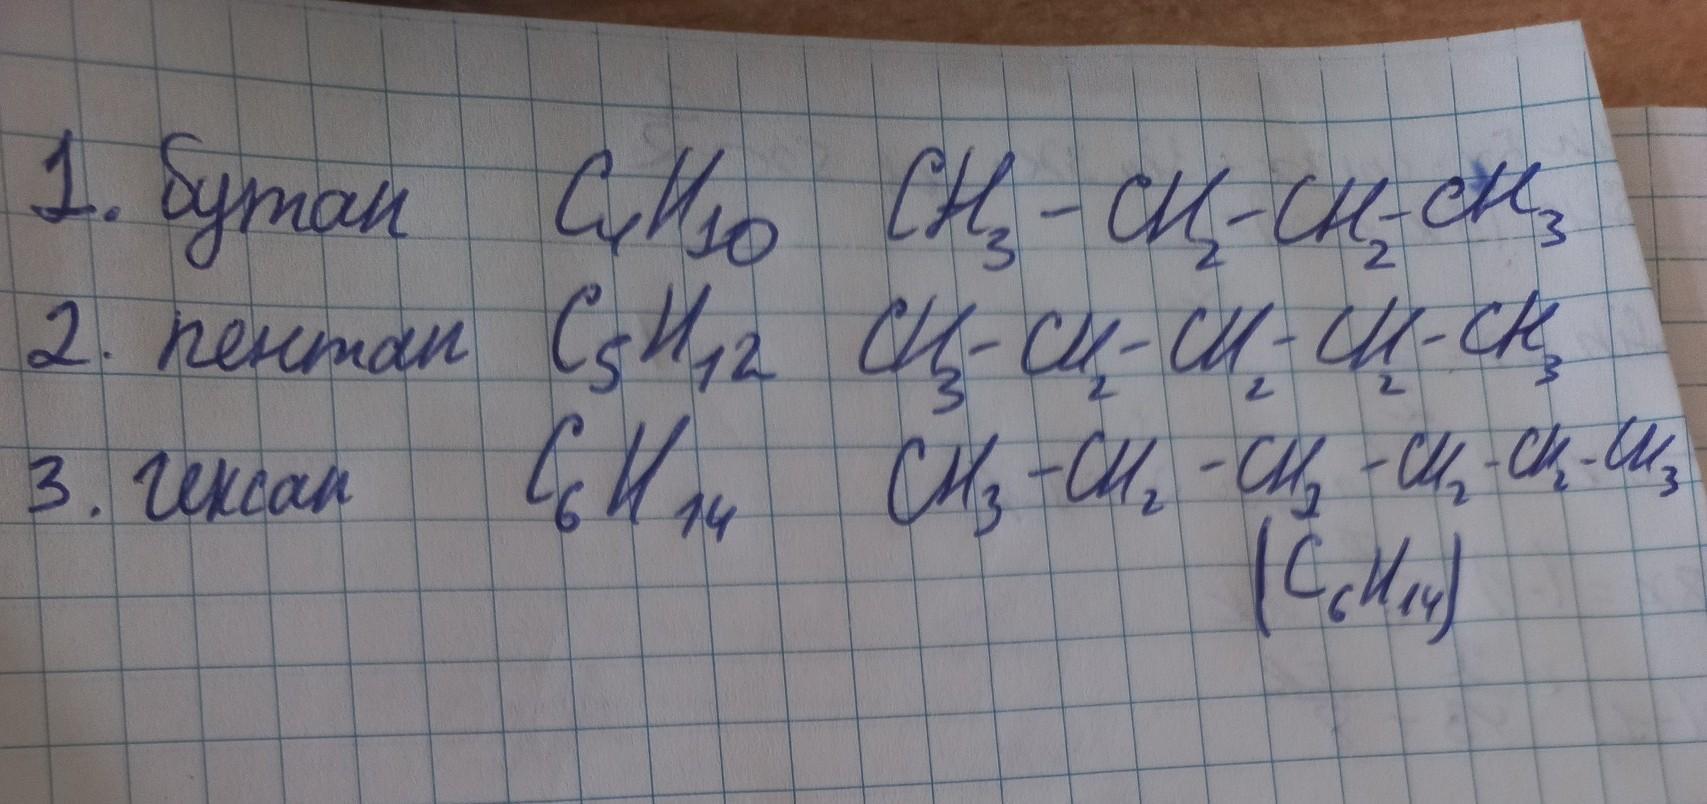 1. бутан C₄H₁₀ CH₃ - CH₂ - CH₂ - CH₃
2. пентан C₅H₁₂ CH₃ - CH₂ - CH₂ - CH₂ - CH₃
3. гексан C₆H₁₄ CH₃ - CH₂ - CH₂ - CH₂ - CH₂ - CH₃
(C₆H₁₄)